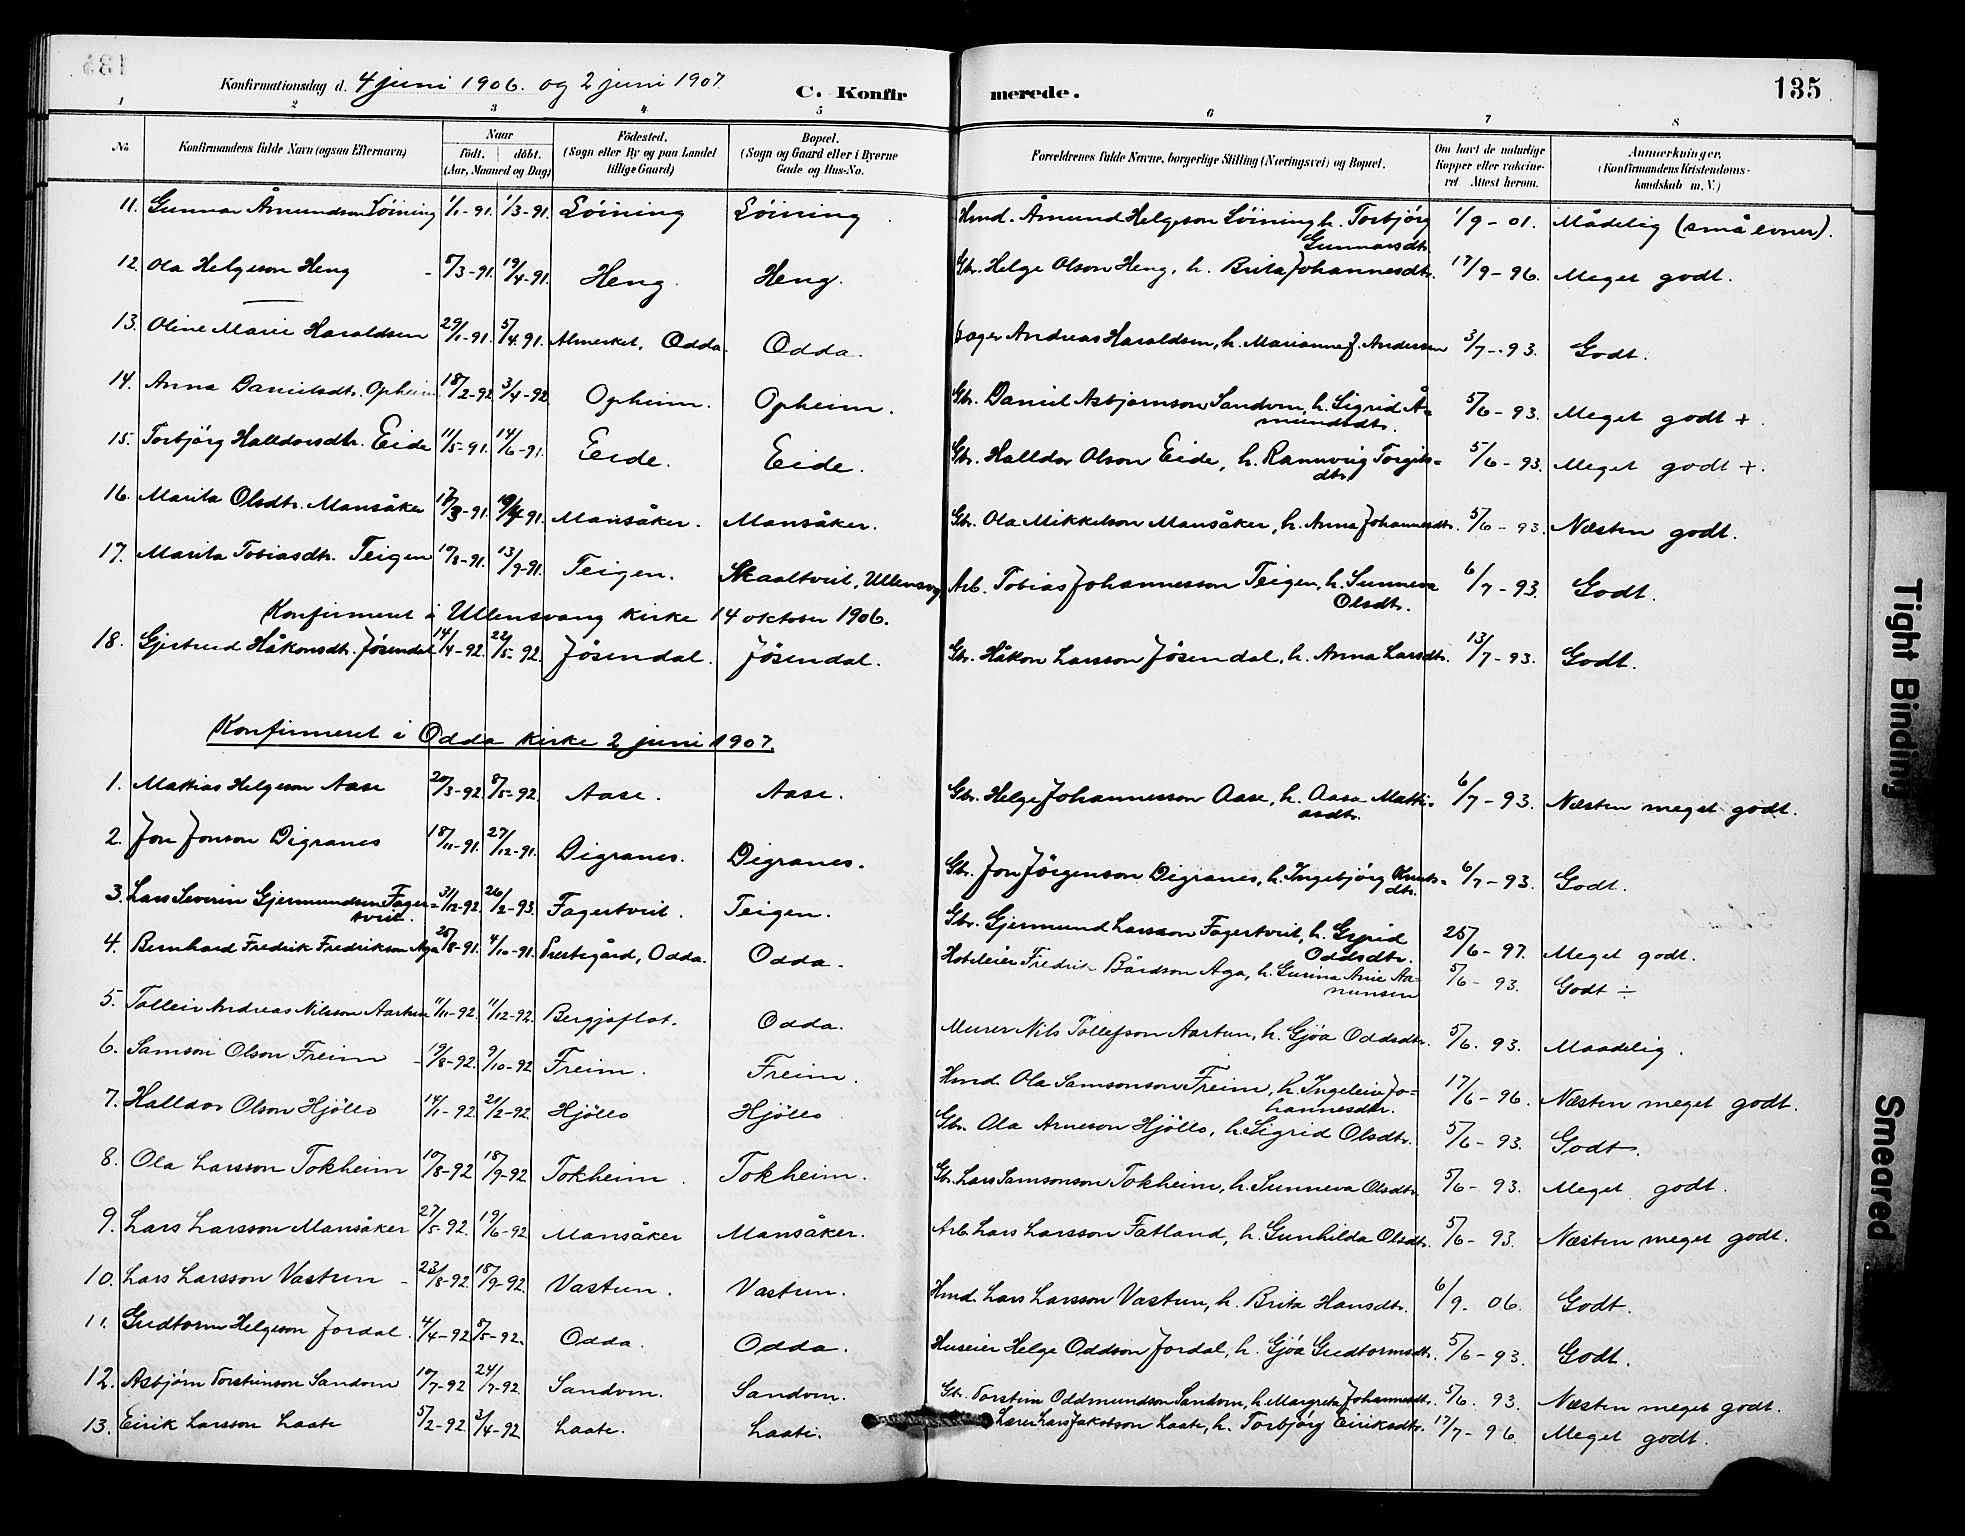 135
Konfirmationsdag d. 4 juni 1906. og 2 juni 1907.
C. Konfirmerede.
135
1 2 3 4 5 6 7 8
No. Konfirmandens fulde Navn (ogsaa Efternavn) Naar födt. döbt. (Aar, Maaned og Dag) Födested. (Sogn eller By og paa Landet tillige Gaard) Bopæl. (Sogn og Gaard eller i Byerne Gade og Hus-No. Forældrenes fulde Navne, borgerlige Stilling (Næringsvei) og Bopæl. Om havt de naturlige Kopper eller vakcineret Attest herom. Anmærkninger, (Konfirmandens Kristendomskundskab m. V.)
11. Gunnar Åmundson Löining 1/1-91. 1/3-91. Löining Löining. Hmd. Åmund Helgeson Löining, h. Torbjörg Gunnarsdtr. 1/9-01. Mådelig (små evner).
12. Ola Helgeson Heng /3-91. 19/4-91. Heng. Heng. Gbr. Helge Olson Heng, h. Brita Johannesdtr. 17/9-96. Meget godt.
13. Oline Marie Haraldsen 29/1-91. 5/4 91. Almerket, Odda. Odda. Andreas Haraldsen, h. Marianne J. Andersen 3/7-93. Godt.
14. Anna Danielsdtr. Opheim 18/2-92 3/4-92 Opheim. Opheim. Gbr. Daniel Asbjørnson Sandven, h. Sigrid Åmundsdtr. 5/6-93. Meget godt +.
15. Torbjörg Halldorsdtr. Eide 11/5-91. 14/6-91. Eide. Eide. Gbr. Halldor Olson Eide, h. Rannveig Torgilsdtr. 5/6-93. Meget godt +.
16. Marita Olsdtr. Mansåker 17/3-91. 19/4 91. Mansåker. Mansåker. Gbr. Ola Mikkelson Mansåker, h. Anna Johannesdtr. 5/6-93. Næsten godt.
17. Marita Tobiasdtr. Teigen 19/8-91. 13/9-91. Teigen. Skaaltveit, Ullensvg. Arb. Tobias Johannesson Teigen, h. Sunneva Olsdtr. 6/7-93. Godt.
Konfirmeret i Ullensvang kirke 14 oktober 1906.
18. Gjertrud Håkonsdtr. Jösendal 14/4-92. 22/5-92. Jösendal. Jösendal. Gbr. Håkon Larsson Jösendal, h. Anna Larsdtr. 13/7-93. Godt.
Konfirmeret i Odda kirke 2 juni 1907.
1. Mattias Helgeson Aase 20/3-92. 8/5-92. Aase. Aase. Gbr. Helge Johannesson Aase, h. Aasa Mattiasdtr. 6/7-93. Næsten meget godt.
2. Jon Jonson Digranes 18/11-91. 27/12-91. Digranes. Digranes. Gbr. Jon Jörgenson Digranes, h. Ingebjörg Knutsdtr. 6/7-93. Godt.
3. Lars Severin Gjermundsen Fagertveit. 31/12-92. 26/2-93. Fagertveit. Teigen. Gbr. Gjermund Larsson Fagertveit, h. Gyrid Oddsdtr. 25/6-97. Meget godt.
4. Bernhard Fredrik Fredrikson Aga 28/8-91. 4/10-91. Prestegård, Odda. Odda. Hoteleier Fredrik Bårdson Aga, h. Gurina Arie Aamunsen 5/6-93. Godt ÷
5. Tolleiv Andreas Nilsson Aartun 11/11-92. 11/12-92. Bergjaflot. Odda. Murer Nils Tollefson Aartun, h. Gjöa Oddsdtr. 5/6. 93. Maadelig.
6. Samson Olson Freim 19/8-92. 9/10-92 Freim. Freim. Hmd. Ola Samsonson Freim, h. Ingeleiv Johannesdtr. 17/6-96. Næsten meget godt.
7. Halldor Olson Hjöllo 14/1-92. 21/2-92. Hjöllo Hjöllo Gbr. Ola Arneson Hjöllo, h. Sigrid Olsdtr. 5/6-93. Godt.
8. Ola Larsson Tokheim 10/8-92 18/9-92 Tokheim. Tokheim. Gbr. Lars Samsonson Tokheim, h. Sunneva Olsdtr. 5/6-93. Meget godt.
9. Lars Larsson Mansåker 27/5-92. 19/6-92 Mansåker Mansåker. Arb. Lars Larsson Fatland, h. Gunhilda Olsdtr. 5/6-93. Næsten meget godt.
10. Lars Larsson Vastun 23/8-92. 18/9-92. Vastun. Vastun. Hmd. Lars Larsson Vastun, h. Brita Hansdtr. 6/9. 06. Godt.
11. Gudtorm Helgeson Jordal. 4/4-92 8/5-92. Odda. Odda. Huseier Helge Oddson Jordal, h. Gjöa Gudtormsdtr. 5/6-93. Godt.
12. Asbjørn Torsteinson Sandven 10/7-92 24/7-92. Sandven. Sandven. Gbr. Torstein Oddmundson Sandven, h. Margreta Johannesdtr. 5/6. 93. Næsten meget godt.
13. Eirik Larsson Laate 5/2-92 3/4-92 Laate. Laate. Lærer Lars Jakobson Laate, h. Torbjörg Eiriksdtr. 17/7-96. Meget godt.
Tight Binding
Smeared